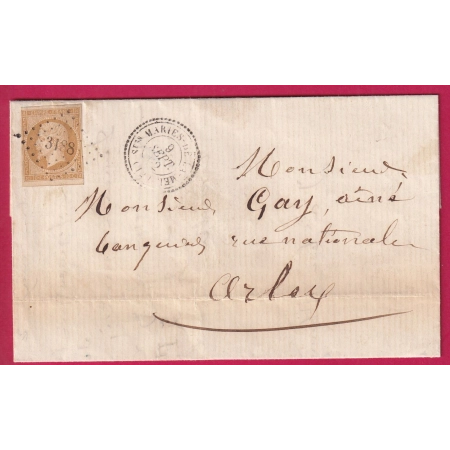 3188
STES MARIES-DE-LA-MER
Monsieur
Monsieur Gay, aîné
banquier rue nationale
Arles